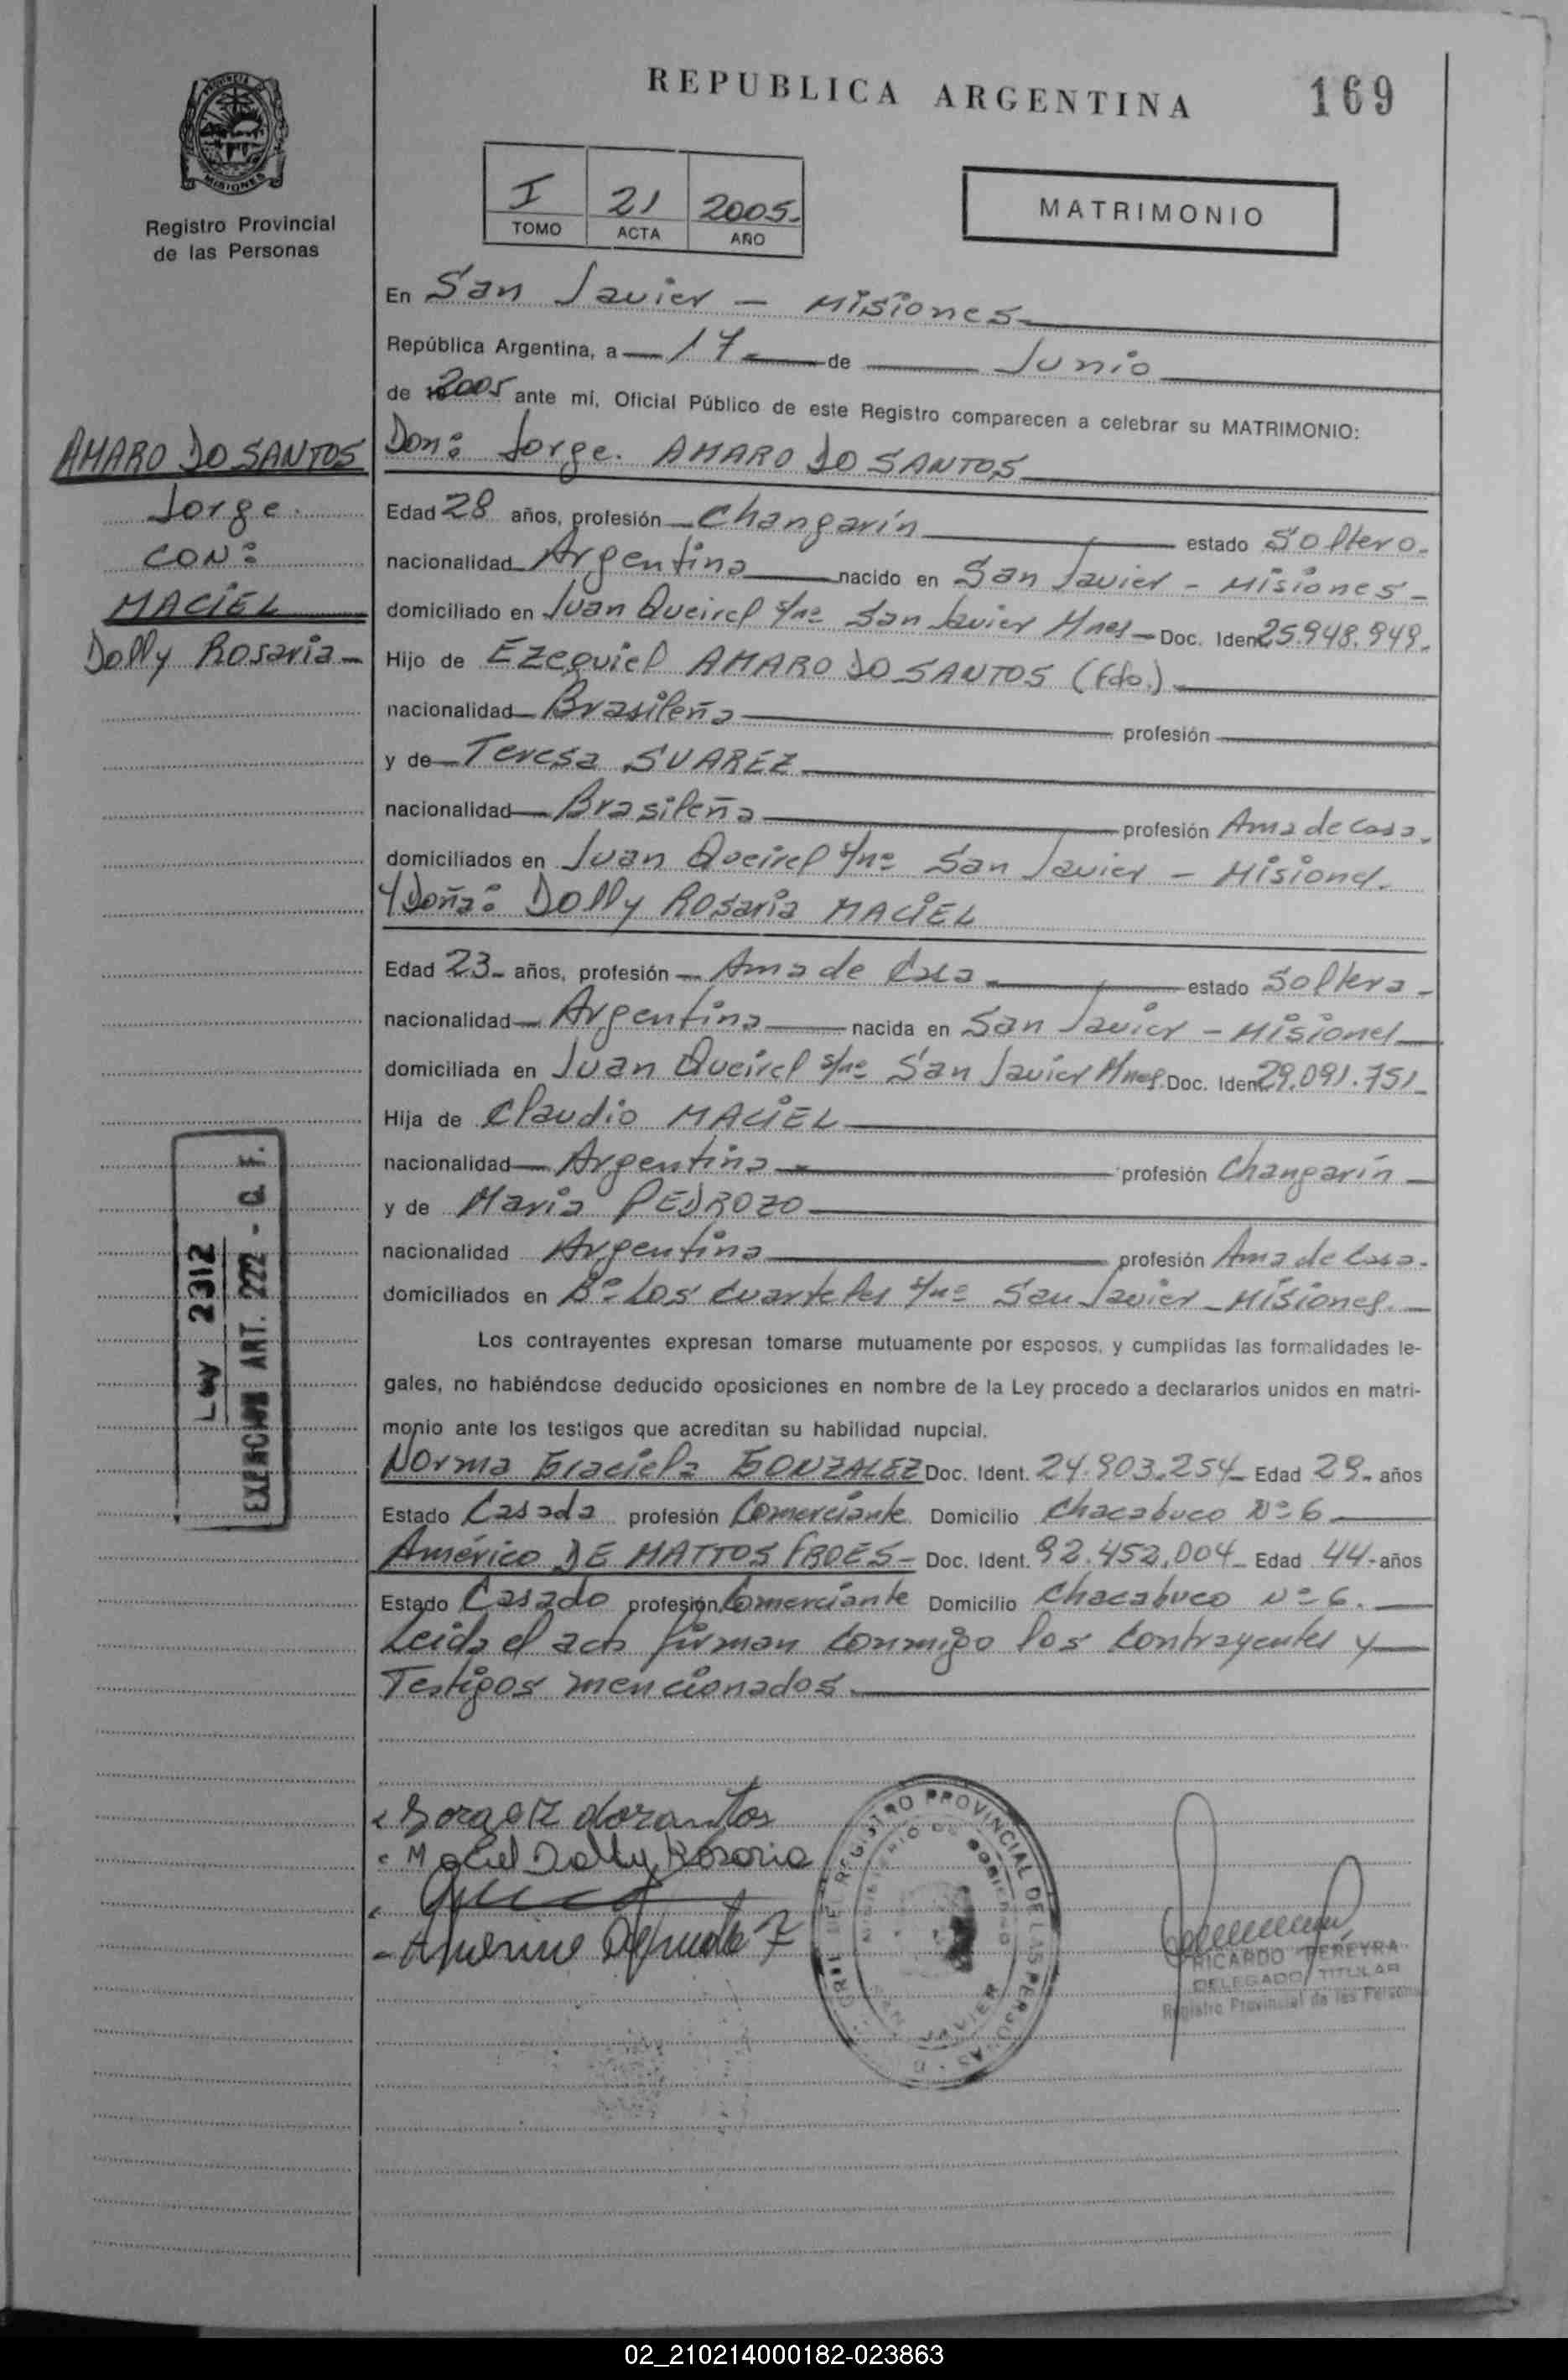 REPUBLICA ARGENTINA
169
PROVINCIA
MISIONES
Registro Provincial
de las Personas
I 21 2005-
TOMO ACTA AÑO
MATRIMONIO
En San Javier - Misiones
República Argentina, a 17 de Junio
de 2005 ante mí, Oficial Público de este Registro comparecen a celebrar su MATRIMONIO:
AMARO DO SANTOS
Jorge.
CON:
MACIEL
Dolly Rosaria-
Don: Jorge. AMARO DO SANTOS
Edad 28 años, profesión Changarín estado Soltero.
nacionalidad Argentina nacido en San Javier - Misiones-
domiciliado en Juan Queirel s/nº San Javier Mnes- Doc. Iden 25.948.949.
Hijo de Ezequiel AMARO DO SANTOS (fdo.)
nacionalidad Brasileña profesión
y de Teresa SUAREZ
nacionalidad Brasileña profesión Ama de casa.
domiciliados en Juan Queirel s/nº San Javier - Misiones.
Y Doña: Dolly Rosaria MACIEL
Edad 23- años, profesión Ama de Casa estado Soltera-
nacionalidad Argentina nacida en San Javier - Misiones
domiciliada en Juan Queirel s/nº San Javier Mnes. Doc. Iden 29.091.751
Hija de Claudio MACIEL
nacionalidad Argentina profesión Changarín
y de Maria PEDROZO
nacionalidad Argentina profesión Ama de Casa.
domiciliados en Bº Los Cuarteles s/nº San Javier - Misiones.
Los contrayentes expresan tomarse mutuamente por esposos, y cumplidas las formalidades le-
gales, no habiéndose deducido oposiciones en nombre de la Ley procedo a declararlos unidos en matri-
monio ante los testigos que acreditan su habilidad nupcial.
Norma Graciela GONZALEZ Doc. Ident. 24.903.254- Edad 29- años
Estado Casada profesión Comerciante. Domicilio Chacabuco Nº 6
Américo DE MATTOS FROES- Doc. Ident. 92.452.004- Edad 44- años
Estado Casado profesión Comerciante Domicilio Chacabuco Nº 6.
Leida el acta firman conmigo los contrayentes y
Testigos mencionados.
Ley 2312
ART. 222 - C. F.
Maciel Dolly Rosaria
REGISTRO PROVINCIAL DE LAS PERSONAS
MINISTERIO DE GOBIERNO
SAN JAVIER
RICARDO PEREYRA
DELEGADO TITULAR
Registro Provincial de las Personas
02_210214000182-023863